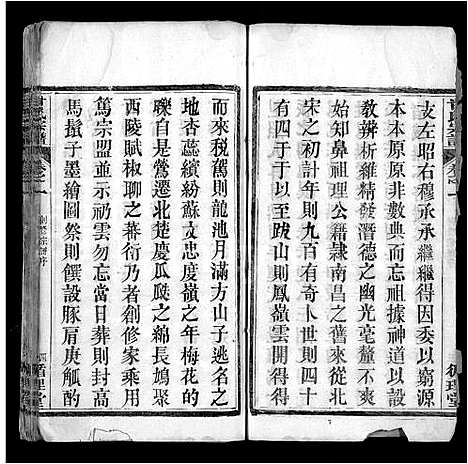 支左昭右穆承承繼繼得因委以窮源
本本原原非數典而忘祖據神道以立
教辨析維精發潛德之幽光毫芒畢
始知鼻祖理公籍隸南昌之舊也從北
宋之初計年則九百有奇卜世則四十
有四于以至跋山則鳳嶺雲開得得
而來稅駕則龍池月滿方山子逃名之
地杏蕊繽紛蘇文忠謫嶺之年梅花的
皪自是鴻騫北楚慶瓜瓞之綿長鳩聚
西陵賦椒聊之蕃衍乃者創修家乘
篤宗盟並示礽雲勿忘當日葬則封高
馬鬣子墨繪圖祭則饌設豚肩庚觚酌
甘氏宗譜
卷之一
四
循理堂